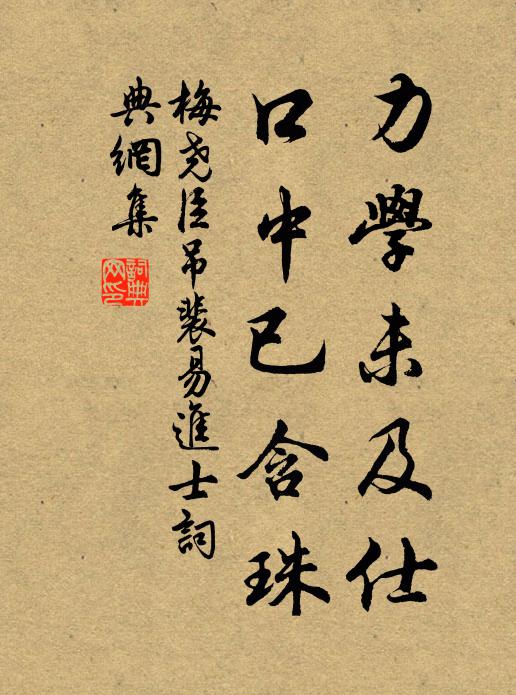 力學未及仕
口中已含珠
梅堯臣吊裴易進士詞
典網集
詞典
网印